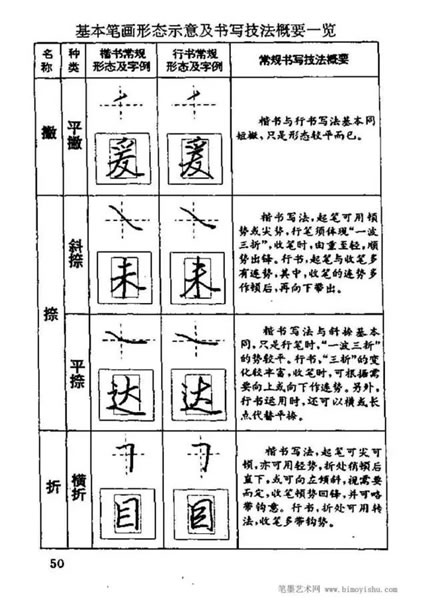 基本笔画形态示意及书写技法概要一览
名称
种类
楷书常规形态及字例
行书常规形态及字例
常规书写技法概要
撇
平撇
爰
爰
楷书与行书写法基本同
短撇，只是形态较平而已。
捺
斜捺
未
未
楷书写法，起笔可用顿
势或尖势，行笔须体现“一波
三折”，收笔时，由重至轻，顺
势出锋。行书，起笔与收笔多
有连势，其中，收笔的连势多
作顿后，再向下带出。
平捺
达
达
楷书写法与斜捺基本
同，只是行笔时，“一波三折”
的势较平。行书，“三折”的变
化较丰富，收笔时，可根据需
要向上或向下作连势。另外，
行书运用时，还可以横或长
点代替平捺。
折
横折
目
目
楷书写法，起笔可尖可
顿，亦可用轻势，折处稍顿后
直下，或可向左倾斜，视需要
而定，收笔顿势回锋，并可略
带钩意。行书，折处可用转
法，收笔多带钩势。
50
笔墨艺术网 www.bimoyishu.com